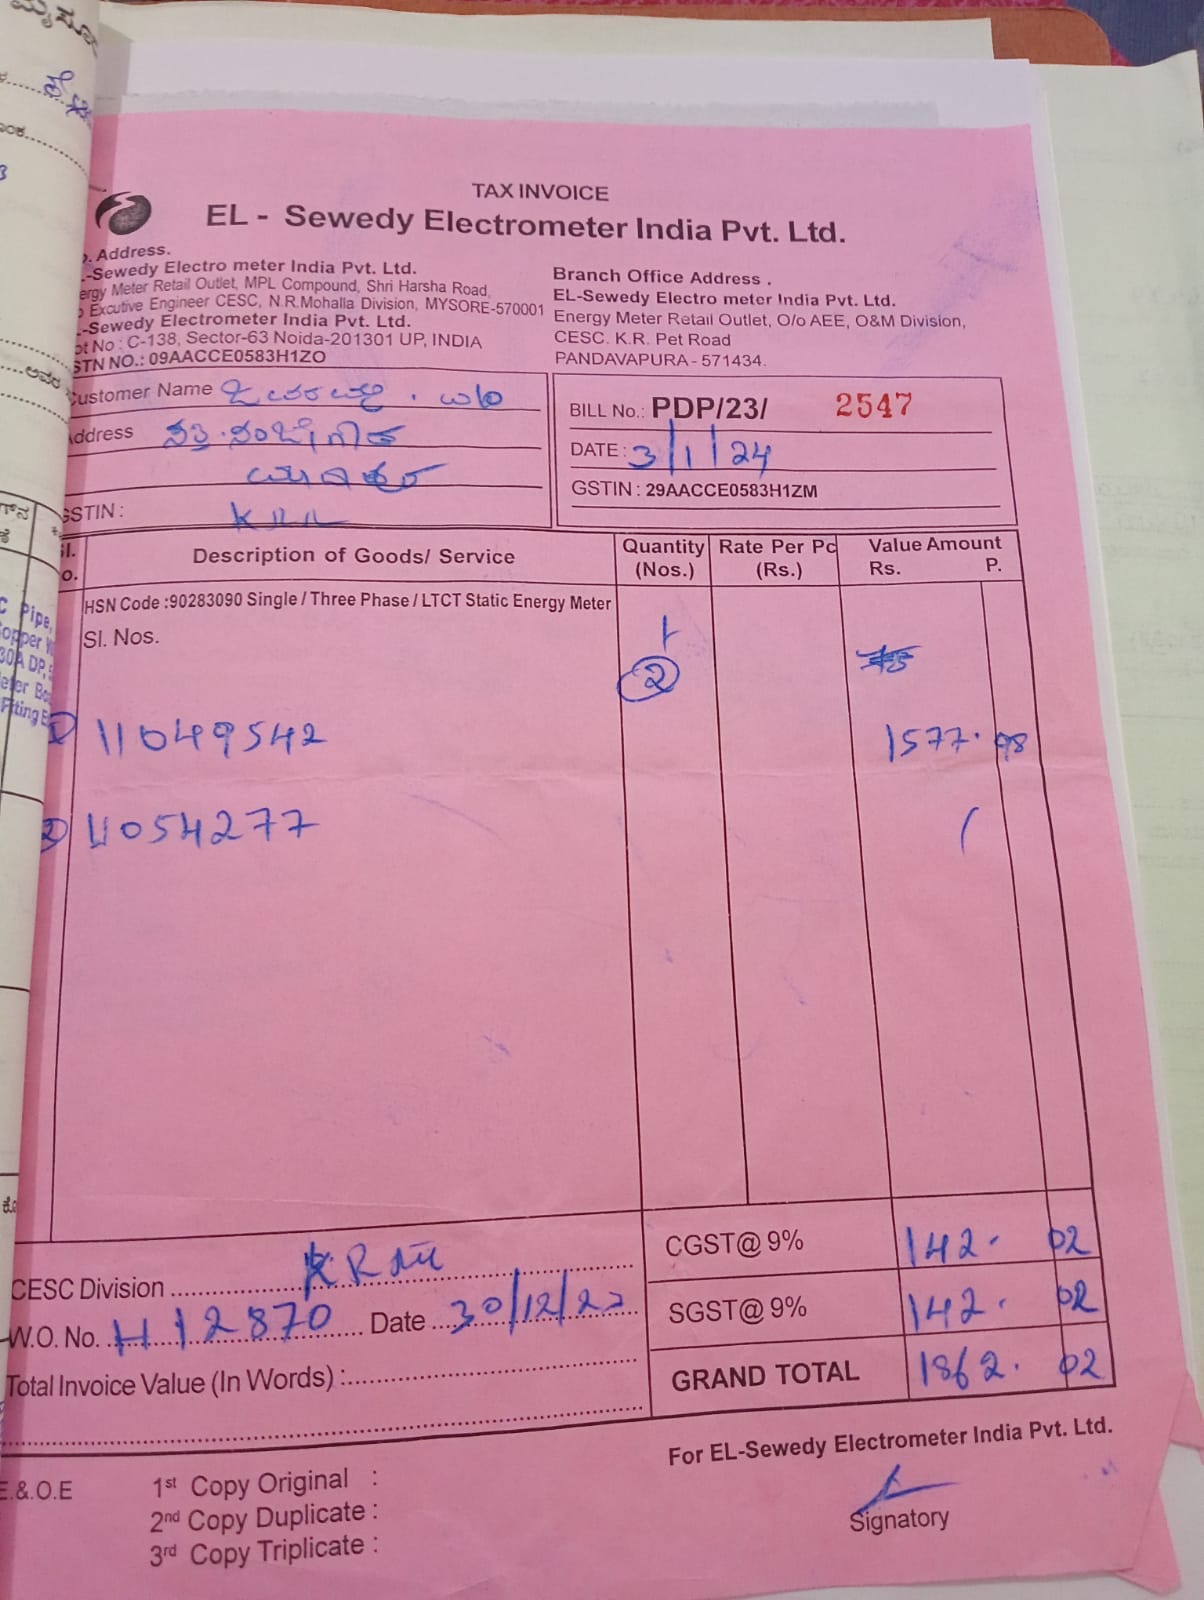 TAX INVOICE
EL - Sewedy Electrometer India Pvt. Ltd.
Address.
-Sewedy Electro meter India Pvt. Ltd.
ergy Meter Retail Outlet, MPL Compound, Shri Harsha Road,
Excutive Engineer CESC, N.R.Mohalla Division, MYSORE-570001
-Sewedy Electrometer India Pvt. Ltd.
ot No : C-138, Sector-63 Noida-201301 UP, INDIA
STN NO.: 09AACCE0583H1ZO
Branch Office Address .
EL-Sewedy Electro meter India Pvt. Ltd.
Energy Meter Retail Outlet, O/o AEE, O&M Division,
CESC. K.R. Pet Road
PANDAVAPURA - 571434.
ustomer Name
ddress
GSTIN :
BILL No.: PDP/23/ 2547
DATE : 3/1/24
GSTIN : 29AACCE0583H1ZM
Sl. o. Description of Goods/ Service Quantity (Nos.) Rate Per Pc (Rs.) Value Amount Rs. P.
HSN Code :90283090 Single / Three Phase / LTCT Static Energy Meter
Sl. Nos.
2
1 11049542 1577. 98
2 11054277
CGST@ 9% 142. 02
SGST@ 9% 142. 02
GRAND TOTAL 1862. 02
CESC Division
W.O. No. H12870 Date 30/12/23
Total Invoice Value (In Words) :
For EL-Sewedy Electrometer India Pvt. Ltd.
E.&.O.E
1st Copy Original :
2nd Copy Duplicate :
3rd Copy Triplicate :
Signatory